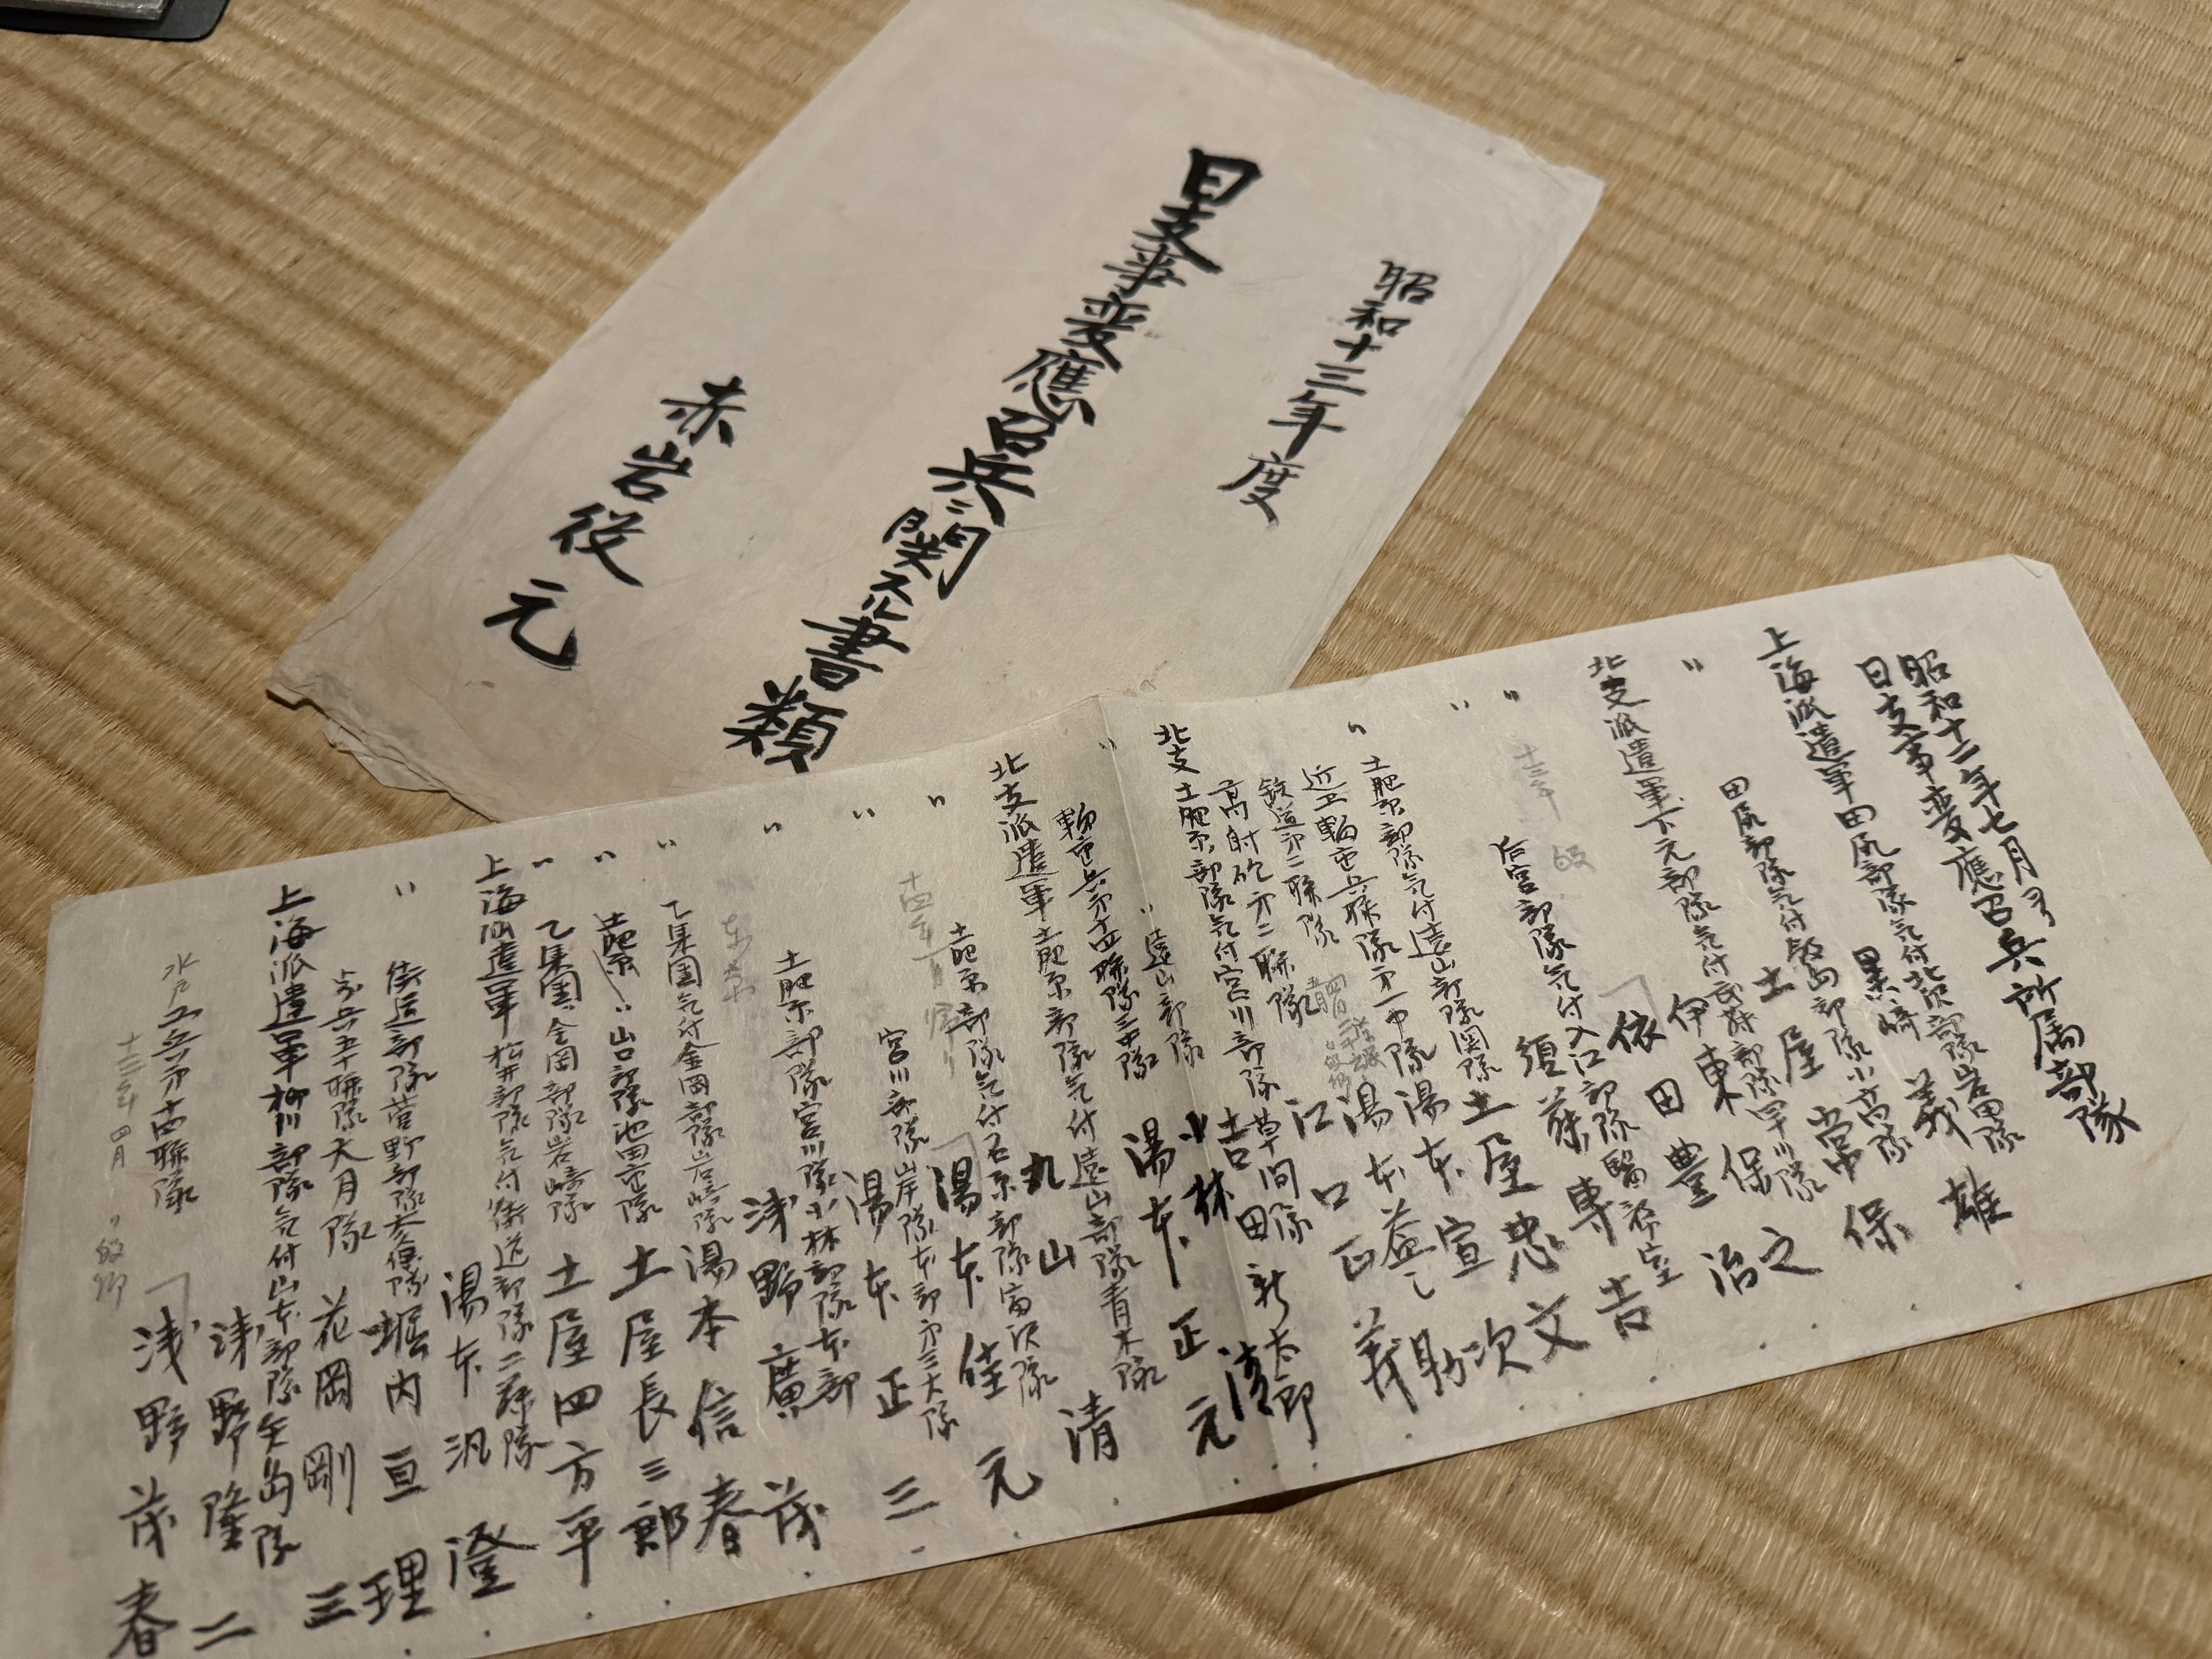 昭和十三年度
日支事変應召兵ニ関スル書類
赤岩役元
昭和十二年七月ヨリ
日支事変應召兵所属部隊
上海派遣軍田尻部隊気付北沢部隊岩田隊
黒崎義雄
〃田尻部隊気付飯島部隊小髙隊
土屋常保
北支派遣軍下元部隊気付
伊東保之
依田豊治
〃後宮部隊気付入江部隊醫務室
須藤専吉
〃土肥原部隊気付遠山部隊関隊
土屋忠文
近卫輜重兵聯隊第一中隊
湯本宣次
鉄道第二聯隊
湯本益之助
髙射砲第二聯隊
江口正義
北支土肥原部隊気付宮川部隊草間隊
吉田新太郎
〃〃遠山部隊
小林清
輜重兵第十四聯隊三中隊
湯本正元
北支派遣軍土肥原部隊気付遠山部隊青木隊
丸山清
〃土肥原部隊気付石原部隊富沢隊
湯本佳元
〃宮川部隊岸隊本部第三大隊
湯本正三
〃土肥原部隊宮川隊小林部隊本部
浅野廣茂
〃乙集團気付金岡部隊岩崎隊
湯本信春
〃土肥原〃山口部隊池田隊
土屋長三郎
〃乙集團金岡部隊岩崎隊
土屋四方平
上海派遣軍松井部隊気付衛生部隊二班隊
湯本汎澄
〃街道部隊菅野部隊
堀内亘理
歩兵五十聯隊大月隊
花岡剛三
上海派遣軍柳川部隊気付山本部隊矢島隊
浅野隆二
水戸工兵第十四聯隊
十三年四月
浅野茂春